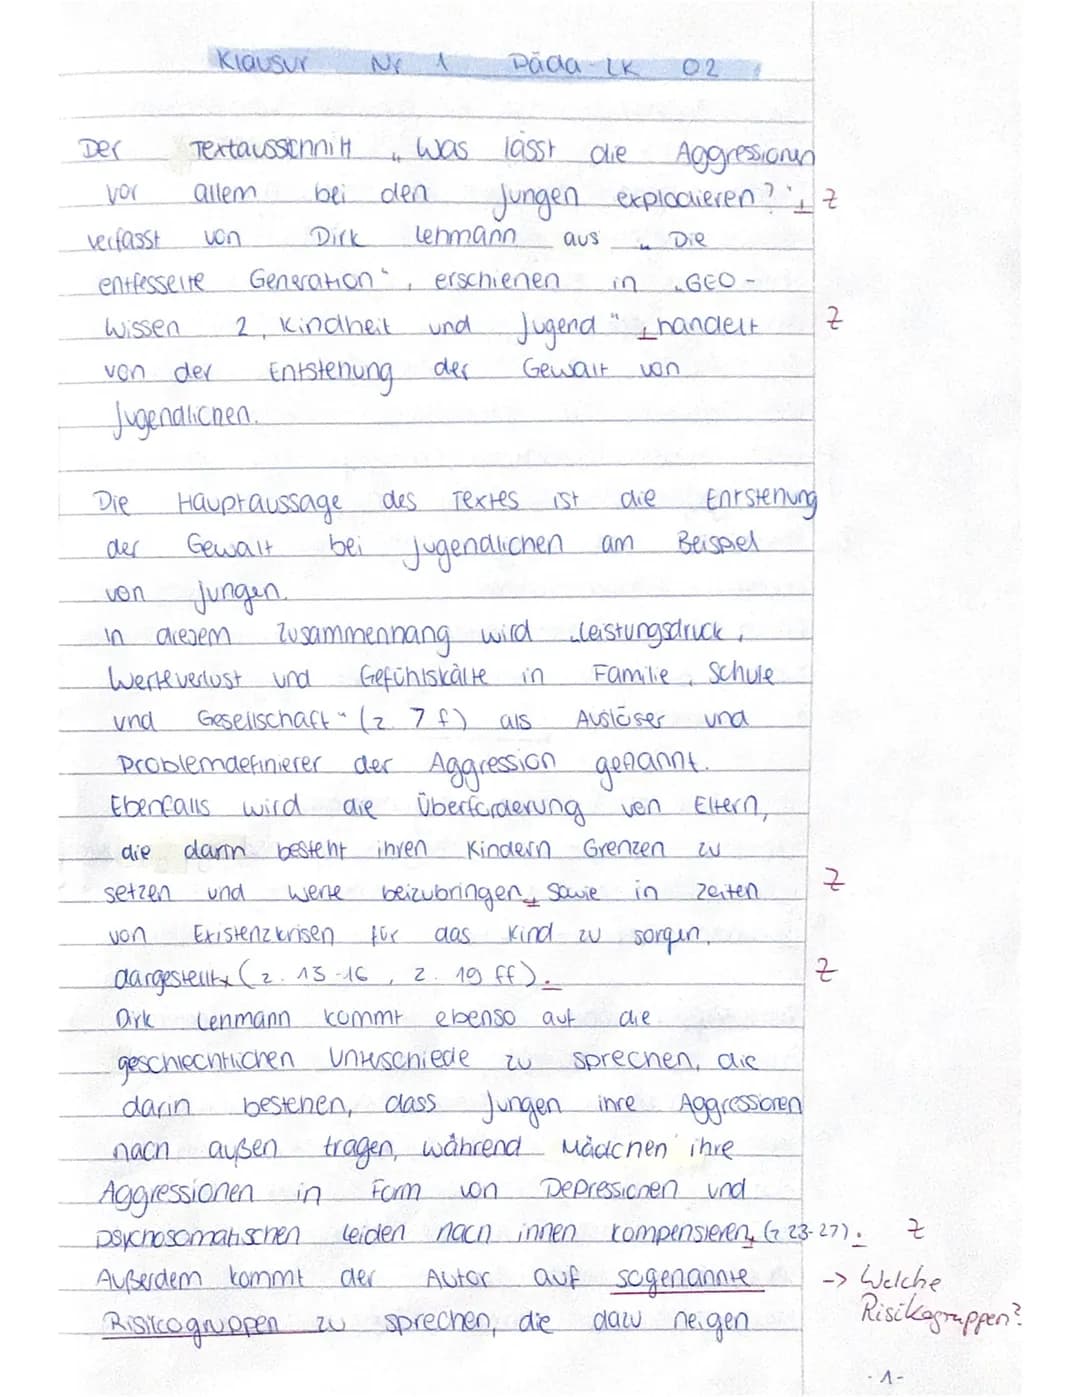 Klausur Nr 1 Päda-LK 02
Der Textausschnitt „Was lässt die Aggressionen
vor allem bei den Jungen explodieren?“, Z
verfasst von Dirk Lehmann aus „Die
entfesselte Generation“, erschienen in „GEO-
Wissen 2, Kindheit und Jugend“, handelt Z
von der Entstehung der Gewalt von
Jugendlichen.
Die Hauptaussage des Textes ist die Entstehung
der Gewalt bei Jugendlichen am Beispiel
von Jungen.
In diesem Zusammenhang wird „Leistungsdruck,
Werteverlust und Gefühlskälte in Familie, Schule
und Gesellschaft“ (Z. 7 f) als Auslöser und
Problemdefinierer der Aggression genannt.
Ebenfalls wird die Überforderung von Eltern,
die darin besteht ihren Kindern Grenzen zu
setzen und Werte beizubringen, sowie in Zeiten Z
von Existenzkrisen für das Kind zu sorgen,
dargestellt (Z. 13-16, Z. 19 ff). Z
Dirk Lehmann kommt ebenso auf die
geschlechtlichen Unterschiede zu sprechen, die
darin bestehen, dass Jungen ihre Aggressionen
nach außen tragen, während Mädchen ihre
Aggressionen in Form von Depressionen und
psychosomatischen Leiden nach innen kompensieren, (Z 23-27). Z
Außerdem kommt der Autor auf sogenannte -> Welche
Risikogruppen zu sprechen, die dazu neigen Risikogruppen?
-1-